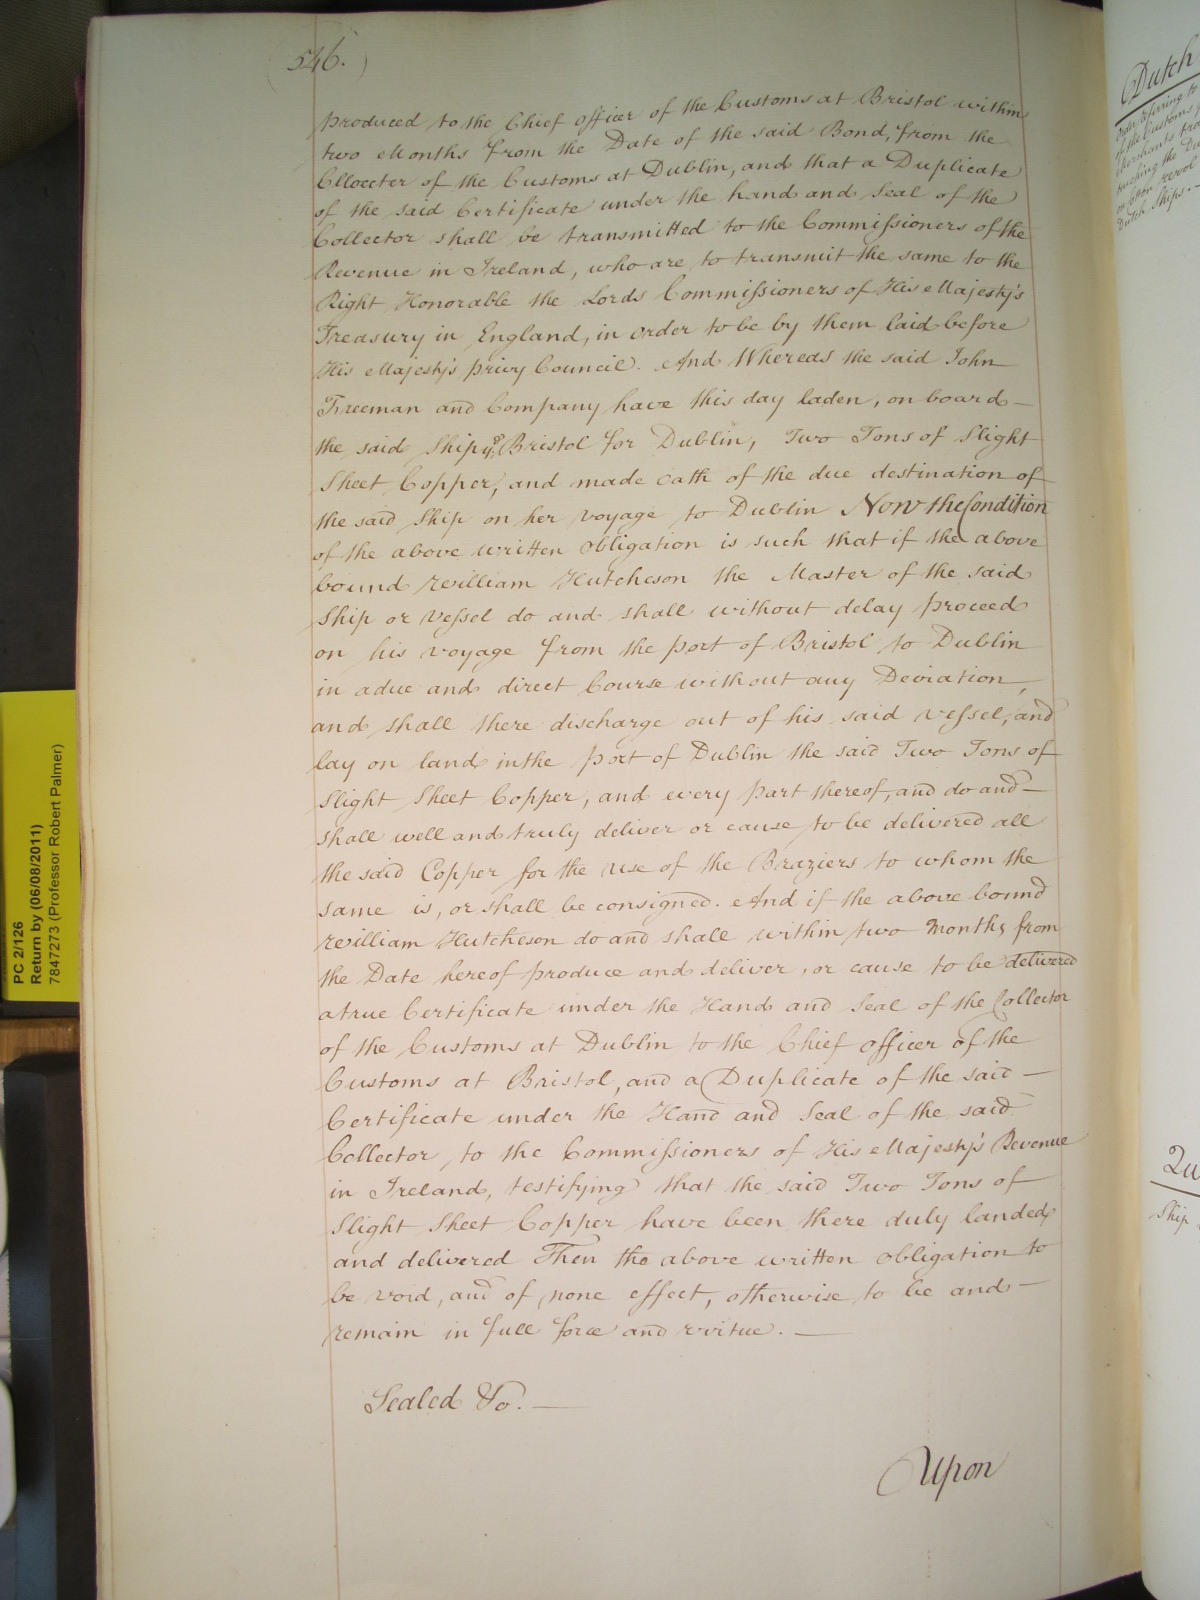 546.
produced to the Chief officer of the Customs at Bristol within
two Months from the Date of the said Bond, from the
Clloecter of the Customs at Dublin, and that a Duplicate
of the said Certificate under the hand and Seal of the
Collector shall be transmitted to the Commissioners of the
Revenue in Ireland, who are to transmit the same to the
Right Honorable the Lords Commissioners of His Majesty's
Treasury in England, in order to be by them laid before
His Majesty's privy Council. And Whereas the said John
Freeman and Company have this day laden, on board
the said Ship Bristol for Dublin, Two Tons of Slight
Sheet Copper, and made oath of the due destination of
the said Ship on her voyage to Dublin Now the Condition
of the above written obligation is such that if the above
bound William Hutcheson the Master of the said
Ship or Vessel do and shall without delay proceed
on his voyage from the port of Bristol to Dublin
in a due and direct Course without any Deviation,
and shall there discharge out of his said vessel, and
lay on land in the port of Dublin the said Two Tons of
Slight Sheet Copper, and every part thereof, and do and
shall well and truly deliver or cause to be delivered all
the said Copper for the use of the Braziers to whom the
same is, or shall be consigned. And if the above bound
William Hutcheson do and shall within two Months from
the Date hereof produce and deliver, or cause to be delivered
a true Certificate under the Hand and Seal of the Collector
of the Customs at Dublin to the Chief officer of the
Customs at Bristol, and a Duplicate of the said
Certificate under the Hand and Seal of the said
Collector, to the Commissioners of His Majesty's Revenue
in Ireland, testifying that the said Two Tons of
Slight Sheet Copper have been there duly landed,
and delivered Then the above written obligation to
be void, and of none effect, otherwise to be and
remain in full force and virtue.
Sealed &c.
Upon
PC 2/126
Return by (06/08/2011)
7847273 (Professor Robert Palmer)
Dutch
of the Customs
Dutch Ships
Ship